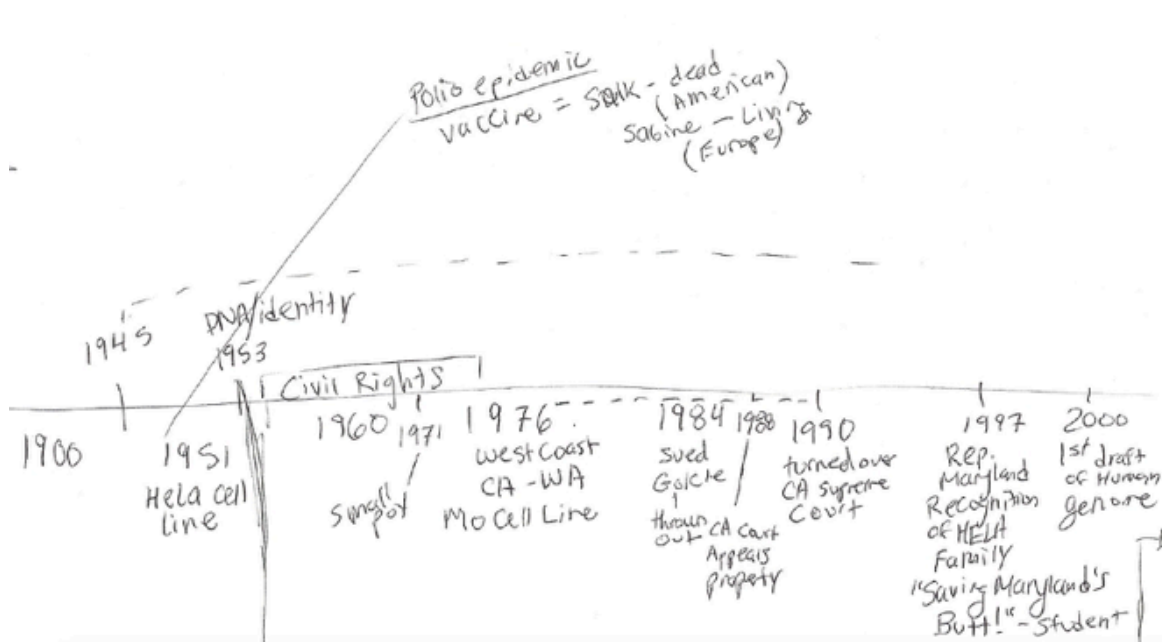 Polio epidemic
vaccine = Salk - dead
(American)
Sabine - Living
(Europe)
1945
DNA/identity
1953
Civil Rights
1900
1951
Hela cell
line
1960
1971
small
pox
1976
west coast
CA - WA
Mo Cell Line
1984
sued
Golde
thrown
out
1988
CA Court
Appeals
property
1990
turned over
CA supreme
Court
1997
Rep.
Maryland
Recognition
of HELA
Family
"Saving Maryland's
Butt!" - Student
2000
1st draft
of Human
genome